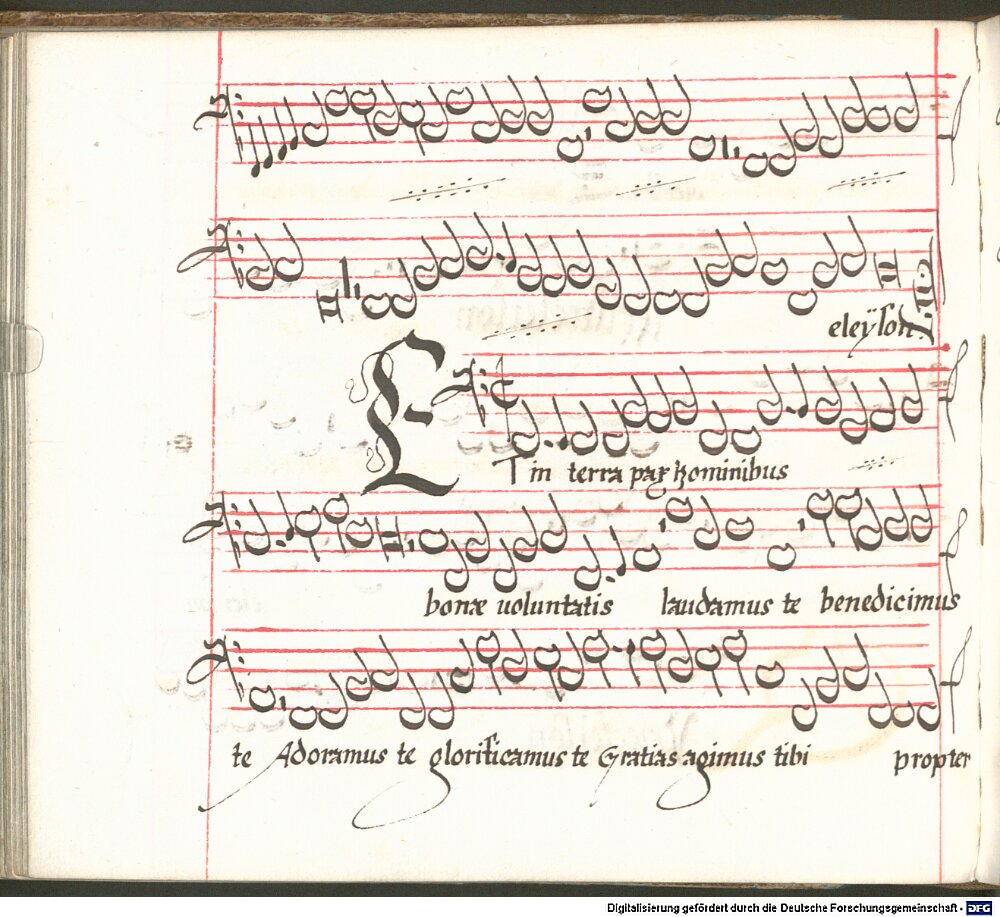 eleÿson
ET in terra pax hominibus
bonæ uoluntatis laudamus te benedicimus
te Adoramus te glorificamus te Gratias agimus tibi propter
Digitalisierung gefördert durch die Deutsche Forschungsgemeinschaft - DFG